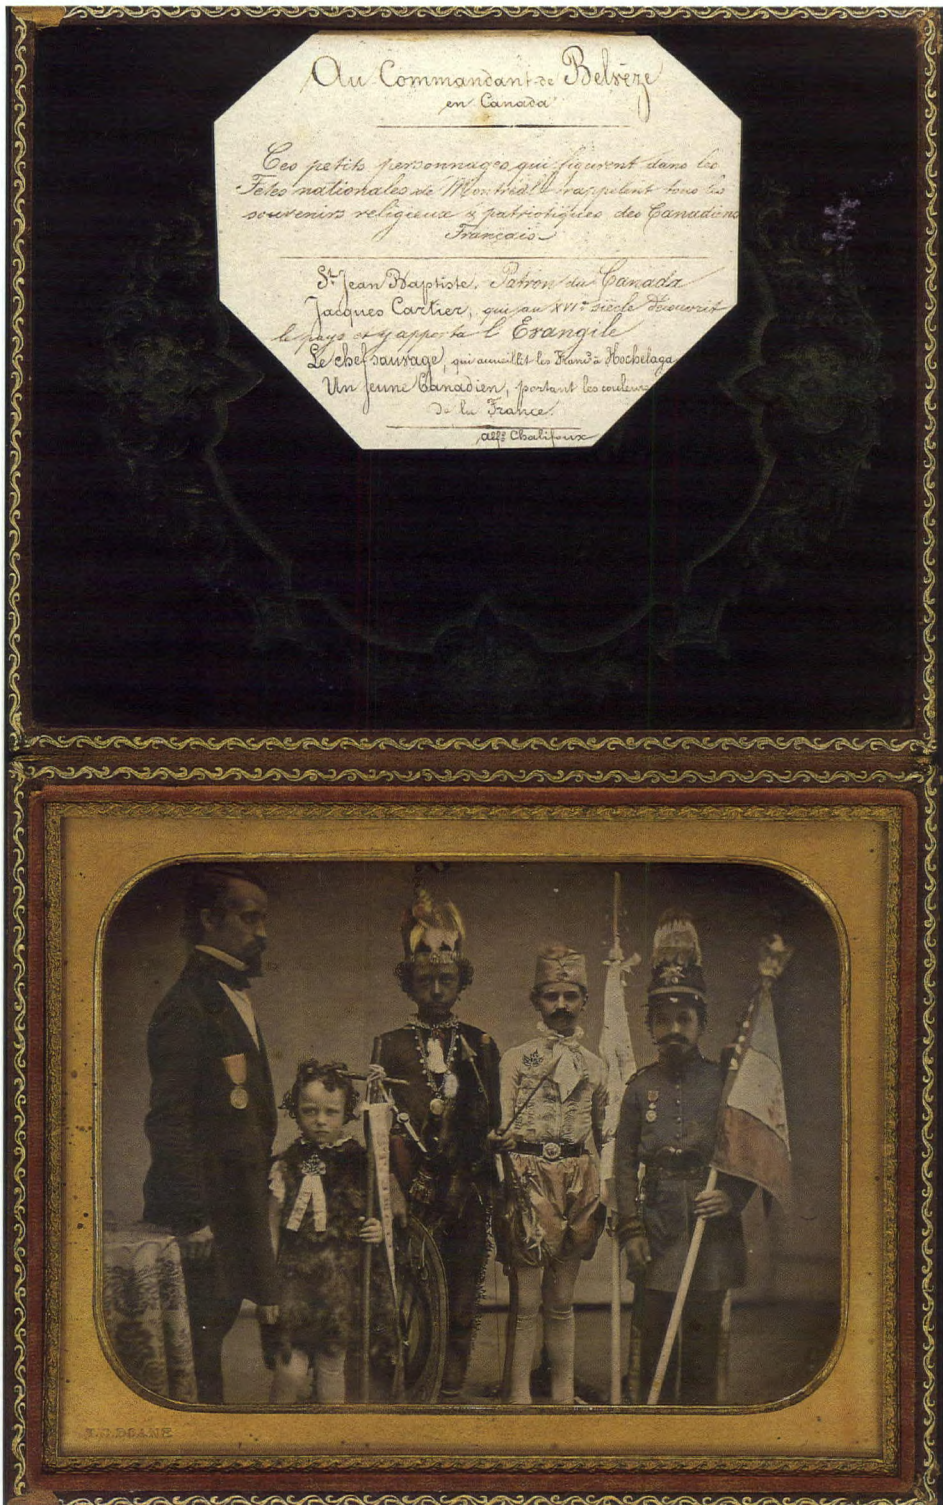 Au Commandant de Belvèze
en Canada
Ces petits personnages, qui figurent dans les
Fetes nationales de Montréal rappelent tous les
souvenirs religieux & patriotiques des Canadiens
Français
St Jean Baptiste, Patron du Canada
Jacques Cartier, qui au XVIe siècle découvrit
le pays et y apporta l'Evangile
Le chef sauvage, qui accueillit les Franc. à Hochelaga
Un jeune Canadien, portant les couleurs
de la France.
Alfd Chalifoux
T.C. DOANE